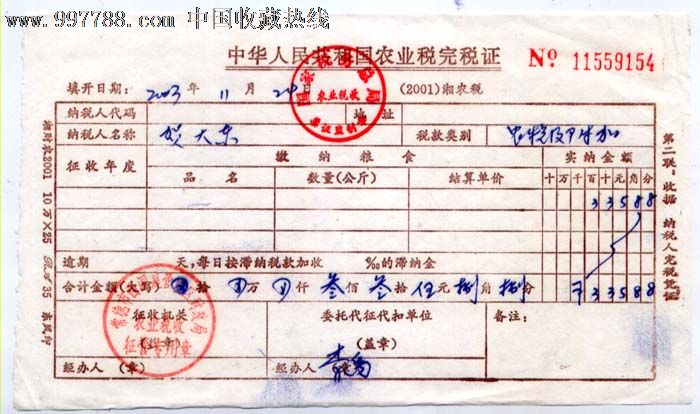 www.997788.com 中国收藏热线
中华人民共和国农业税完税证 No 11559154
填开日期: 2003 年 11 月 20日 (2001)湘农税
纳税人代码 地址
纳税人名称 贺大东 税款类别 农税及附加
征收年度 缴纳粮食 实纳金额
品名 数量(公斤) 结算单价 十万千百十元角分
33588
逾期 天,每日按滞纳税款加收 ‰的滞纳金
合计金额(大写) 拾 万 仟 叁佰 叁拾 伍元 捌角 捌分 33588
征收机关 委托代征代扣单位 备注:
(盖章) (盖章)
经办人 (章) 经办人 (章)
农业税收
票证监制章
农业税收
征管专用章
湘财农2001 10万×25 35
第二联:收据 纳税人完税凭证